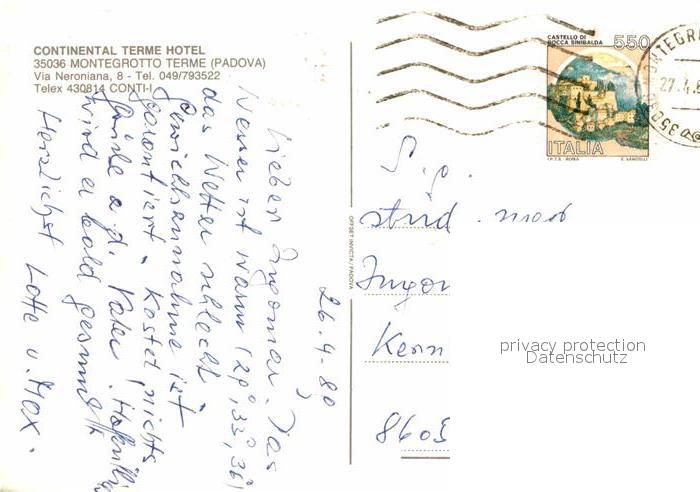 CONTINENTAL TERME HOTEL
35036 MONTEGROTTO TERME (PADOVA)
Via Neroniana, 8 - Tel. 049/793522
Telex 430814 CONTI-I
26.4.89
Lieber Ingomar. Das
Wasser ist warm (29°, 33°, 36°)
das Wetter schlecht
Gewichtsannahme ist
garantiert. Kostet nichts
Grüße a. d. Vater! Hoffentlich
wird er bald gesund!
Herzlichst Lotte u. Max.
OFFSET INVICTA/PADOVA
CASTELLO DI
ROCCA SINIBALDA
550
ITALIA
I.P.Z.S. - ROMA
E. VANGELLI
27.4.8
35036
S. g.
stud. mod
Ingor
Kern
8605
privacy protection
Datenschutz